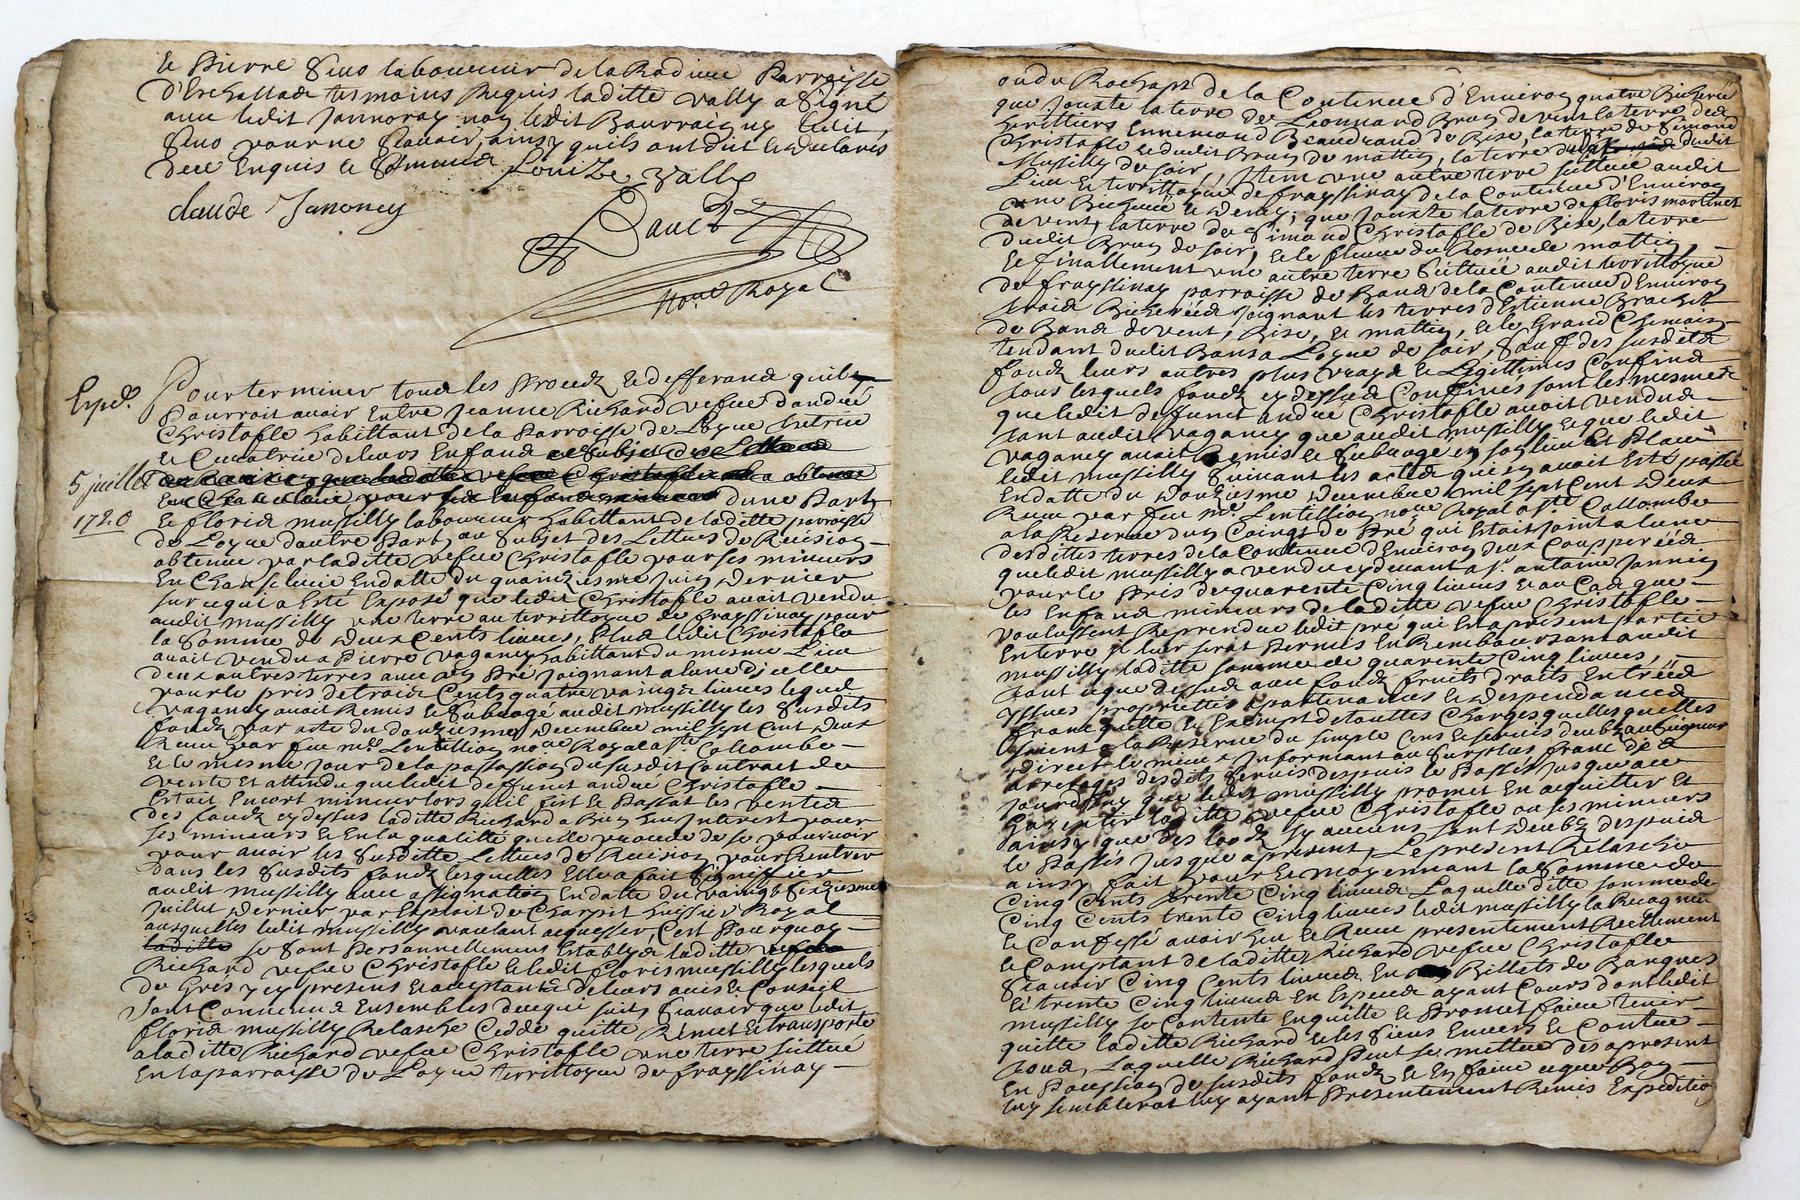 et Pierre Sivo laboureur de la Radiuu Parroisse
d'Eschallade tesmoins Requis laditte vally a Signé
avec ledit Jannoray non ledit Bourraigny ledit
Sivo pour ne Scavoir, ainsy quils ont dit et declaré
dece Enquis et Sommés Louize vally
claude Janoney
no.re Royal
Exped.
Pour terminer tous les Procedz et defferand quil y
Pourroit avoir Entre Jeanne Richard vefve d'andré
Christofle habittant de la Parroisse de Loyue tutrice
et Curatrice de leurs Enfans
5 juillet
1720
d'une Part
et floris mussilly laboureur habittant de laditte parroisse
de Loyue dautre Part, au Subjet des Lettres de Recision
obtenue par laditte vefve Christofle pour ses mineurs
En Chancelerie En datte du quainziesme Juin dernier
sur ce qui a Esté Exposé que ledit Christofle avoit vendu
audit mussilly une terre au territtoyre de frayssinay pour
la Somme de deux Cents livres, Et que ledit Christofle
avoit vendu a Pierre vagancy habittant du mesme Lieu
deux autres terres avec un Pré Joignant a lune dicelle
pour le pris de trois Cents quatre vaingts livres lequel
vagancy avoit Remis et Subrogé audit mussilly les Susdits
fondz par acte du douziesme decembre mil sept cent deux
Receu par feu m.e Lentillion no.re Royal a S.te Collombe
et le mesme Jour de la passation du susdit Contract de
vente Et attendu que ledit deffunct andré Christofle
Estoit Encort mineur lors quil fist et Passat les ventes
des fondz cy dessus laditte Richard a Eu Interest pour
ses mineurs et En la qualitté quelle procede de se pourvoir
pour avoir les Susditte Lettres de Recision pour Rentrer
dans les Susdits fondz lesquelles Elle a fait Signiffier
audit mussilly avec assignation En datte du vaingt Sixiesme
Juillet dernier par Exploit de Charpit huissier Royal
ausquelles ledit mussilly voulant acquiesser C'est Pourquoy
se Sont Personnellement Establys laditte
Richard vefve Christofle et ledit floris mussilly lesquels
de Gres y cy presens et acceptants de leurs avis et Conseil
Sont Convenus Ensembles de ce qui suit, Scavoir que ledit
floris mussilly Relasche Cedde quitte Remet et transporte
a laditte Richard vefve Christofle une terre sittué
En la parroisse de Loyue territtoyre de frayssinay
ou du Rochart de la Contenue d'Environ quatre Bicherée
que Jouxte la terre de Leonnard Brun de vent la terre des
herittiers Ennemond Beaudrand de Bise, la terre de Simond
Christofle et dudit Brun de mattin, la terre dudit
Mussilly de soir, Item une autre terre sittuée audit
Lieu et territtoyre de frayssinay de la Contenue d'Environ
une Bicherée et demy, que Jouxte la terre de floris martinet
de vent, la terre de Simond Christofle de Bise, la terre
dudit Brun de soir, et le fleuve du Rosne de mattin,
et finallement une autre terre Sittuée audit territtoyre
de frayssinay parroisse de Bans de la Contenue d'Environ
trois Bicherées Joignant les terres d'Estienne Brachet
de Bans de vent, Bise, et mattin, et le Grand Chemain
tendant dudit Bans a Loyue de soir, Sauf des susdits
fondz leurs autres plus vrays et Legittimes Confins
tous lesquels fondz cy dessus Confinés sont les mesmes
que ledit deffunct andré Christofle avoit vendus
tant audit vagancy que audit mussilly et que ledit
vagancy avoit Remis et Subrogé En son lieu Et Place
ledit mussilly Suivant les actes qui En avoit Esté passé
En datte du douziesme decembre mil sept Cent deux
Receu par feu m.e Lentillion no.re Royal a S.te Collombe
a la Reserve dun Coings de Pré qui Estoit Joint a lune
desdittes terres de la Contenue d'Environ deux Coupperées
que ledit mussilly a vendu cy devant a S.r antoine Jannin
pour le Pris de quarente Cinq livres et au Cas que
les Enfans mineurs de laditte vefve Christofle
voulussent Reprendre ledit pré qui Est a present partie
En terre Il leur serat Permis En Remboursant audit
mussilly laditte somme de quarente Cinq livres,
tout ce que dessus avec fondz fruits droits Entrées
yssues proprietés apartenances et despendances
franc quitte et Exempt de touttes Charges quelles quelles
soient a la Reserve du simple Cens et servis deubz au Seigneur
direct le mieux Informant au Surplus franc de
arrerages desdits Servis despuis le Passés Jusqua ce
Jourdhuy que ledit mussilly promet En acquitter Et
Garentir laditte vefve Christofle ou ses mineurs
ainsy que des loods sy aucuns sont deubz despuis
le Passés Jusque a present, Le present Relasche
ainsy fait pour et moyennant la Somme de
Cinq Cents trente Cinq livres Laquelle ditte somme de
Cinq Cents trente Cinq livres ledit mussilly la Recogneu
et Confessé avoir Eu et Receu presentement Reellement
et Comptant de laditte Richard vefve Christofle
Scavoir Cinq Cents livres En Billets de Banques
Et trente Cinq livres En Especes ayant Cours dont ledit
mussilly se Contente En quitte et Promet faire tenir
quitte laditte Richard et les Siens Envers et Contre
tous, Laquelle Richard Peut se mettre des a present
En Possession de susdits fondz et En faire ce que Bon
luy semblerat luy ayant Presentement Remis Expeditio